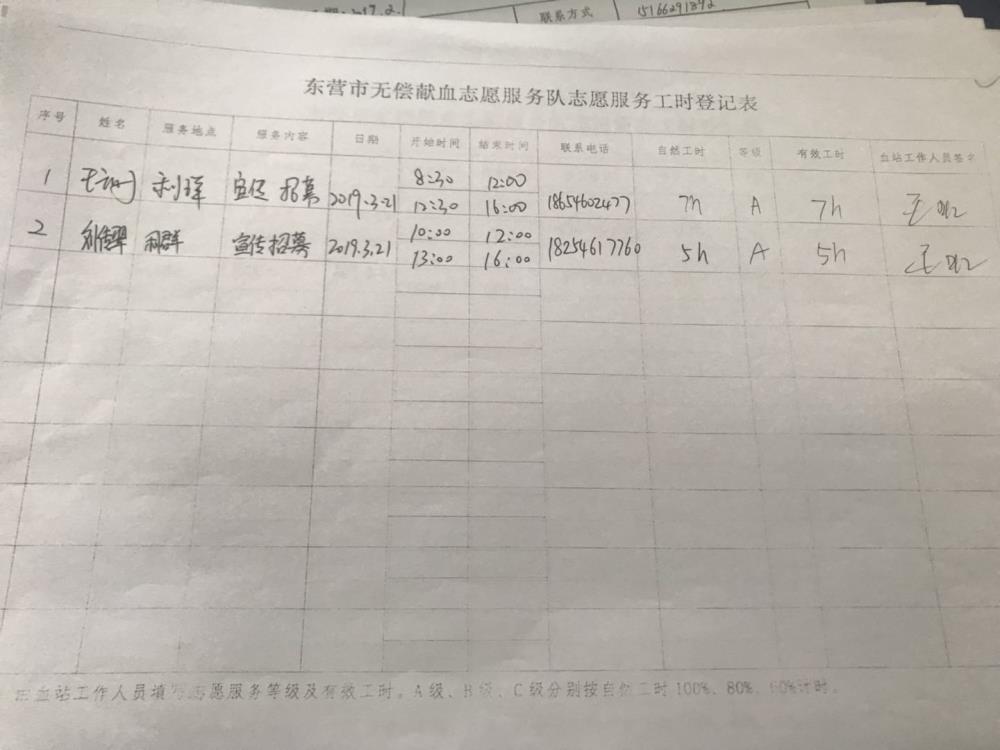 联系方式 15166291892
东营市无偿献血志愿服务队志愿服务工时登记表
序号 姓名 服务地点 服务内容 日期 开始时间 结束时间 联系电话 自然工时 等级 有效工时 血站工作人员签名
8:30 12:00
1 宣传 招募 2019.3.21 18654602477 7h A 7h
12:30 16:00
10:00 12:00
2 利群 宣传招募 2019.3.21 18254617760 5h A 5h
13:00 16:00
血站工作人员填写志愿服务等级及有效工时。A级、B级、C级分别按自然工时100%、80%、60%计时。